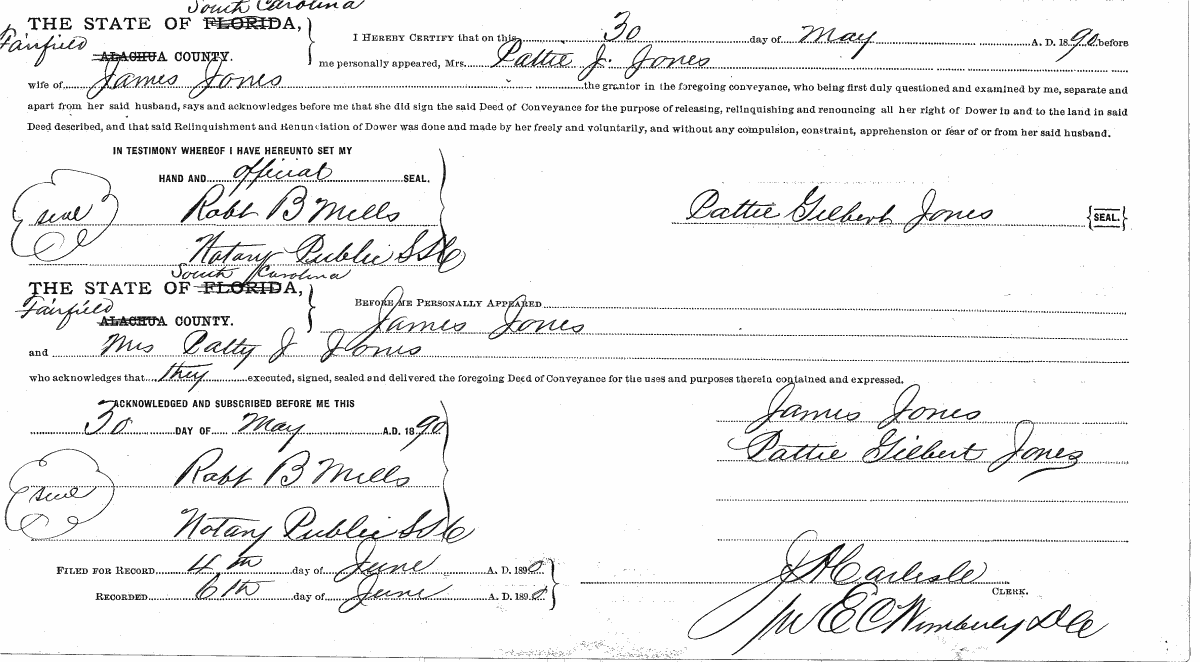 South Carolina
THE STATE OF FLORIDA,
Fairfield
ALACHUA COUNTY.
I HEREBY CERTIFY that on this 30 day of May A. D. 1890 before
me personally appeared, Mrs. Pattie J. Jones
wife of James Jones the grantor in the foregoing conveyance, who being first duly questioned and examined by me, separate and
apart from her said husband, says and acknowledges before me that she did sign the said Deed of Conveyance for the purpose of releasing, relinquishing and renouncing all her right of Dower in and to the land in said
Deed described, and that said Relinquishment and Renunciation of Dower was done and made by her freely and voluntarily, and without any compulsion, constraint, apprehension or fear of or from her said husband.
IN TESTIMONY WHEREOF I HAVE HEREUNTO SET MY
HAND AND official SEAL.
seal Robt B Mills
Pattie Gilbert Jones {SEAL.}
Notary Public
South Carolina
THE STATE OF FLORIDA,
Fairfield
ALACHUA COUNTY.
BEFORE ME PERSONALLY APPEARED
James Jones
and Mrs Patty J Jones
who acknowledges that they executed, signed, sealed and delivered the foregoing Deed of Conveyance for the uses and purposes therein contained and expressed.
ACKNOWLEDGED AND SUBSCRIBED BEFORE ME THIS
30 DAY OF May A.D. 1890
James Jones
Pattie Gilbert Jones
seal Robt B Mills
Notary Public
FILED FOR RECORD 4th day of June A. D. 1890
RECORDED 6th day of June A. D. 1890
J A Carlisle
CLERK.
E C Wimberly D C